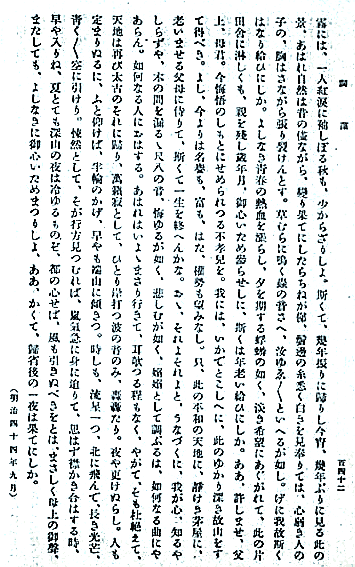 詞藻
百四十二
露には、一人紅涙に袖しぼる秋も、少からざりしよ。斯くて、幾年振りに歸りし今宵、幾年ぶりに見る此の
景、あはれ自然は昔の儘ながら、變り果てにしたらちねが俤、鬢邊の糸悉く白きを見奉りては、心弱き人の
子の、胸はさながら張り裂けんとす。草むらに鳴く蟲の音さへ、汝ゆゑ〳〵といへるが如し。げに我故斯く
はなり給ひにしか。よしなき青春の熱血を漲らし、夕を期する蜉蝣の如く、淡き希望にあくがれて、此の片
田舎に淋しくも、親を殘し歳年月、御心いため參らせしに、斯くは年老い給ひにしか。ああ、許しませ、父
上、母君。今悔悟のしもとにせめられつる不孝兒を。我には、いかでとこしへに、此のゆかり深き故山をす
て得べき。よし、今よりは名譽も、富も、はた、權勢も望みなし。只、此の平和の天地に、靜けき茅屋に、
老いませる父母に侍りて、斯くて一生を終へんかな。おゝ、それよそれよと、うなづくに、我が心、知るや
しらずや、木の間を漏るゝ尺八の音、悔ゆるが如く、悲しむが如く、嫋嫋として調ぶるは、如何なる曲にや
あらん。如何なる人におはする。あはれはいよ〳〵まさり行きて、耳欹つる程もなく、やがて、そも杜絶えて、
天地は再び太古のそれに歸り、萬籟寂として、ひとり岸打つ波の音のみ、轟轟たり。夜や更けぬらし。人も
定まりぬるに、ふと仰げば、半輪のかげ、早や端山に傾きつ。時しも、流星一つ、北に飛んで、長き光芒、
青く〳〵空に引けり。悚然として、そが行方見つむれば、嵐氣急に身に迫りて、思はず襟かき合はする時、
早や入りね、夏とても深山の夜は冷ゆるものぞ、都の心せば、風も引きぬべきをとは、まさしく母上の御聲、
またしても、よしなきに御心いためまつりしよ、ああ、かくて、歸省後の一夜は果てにしか。
(明治四十四年九月)